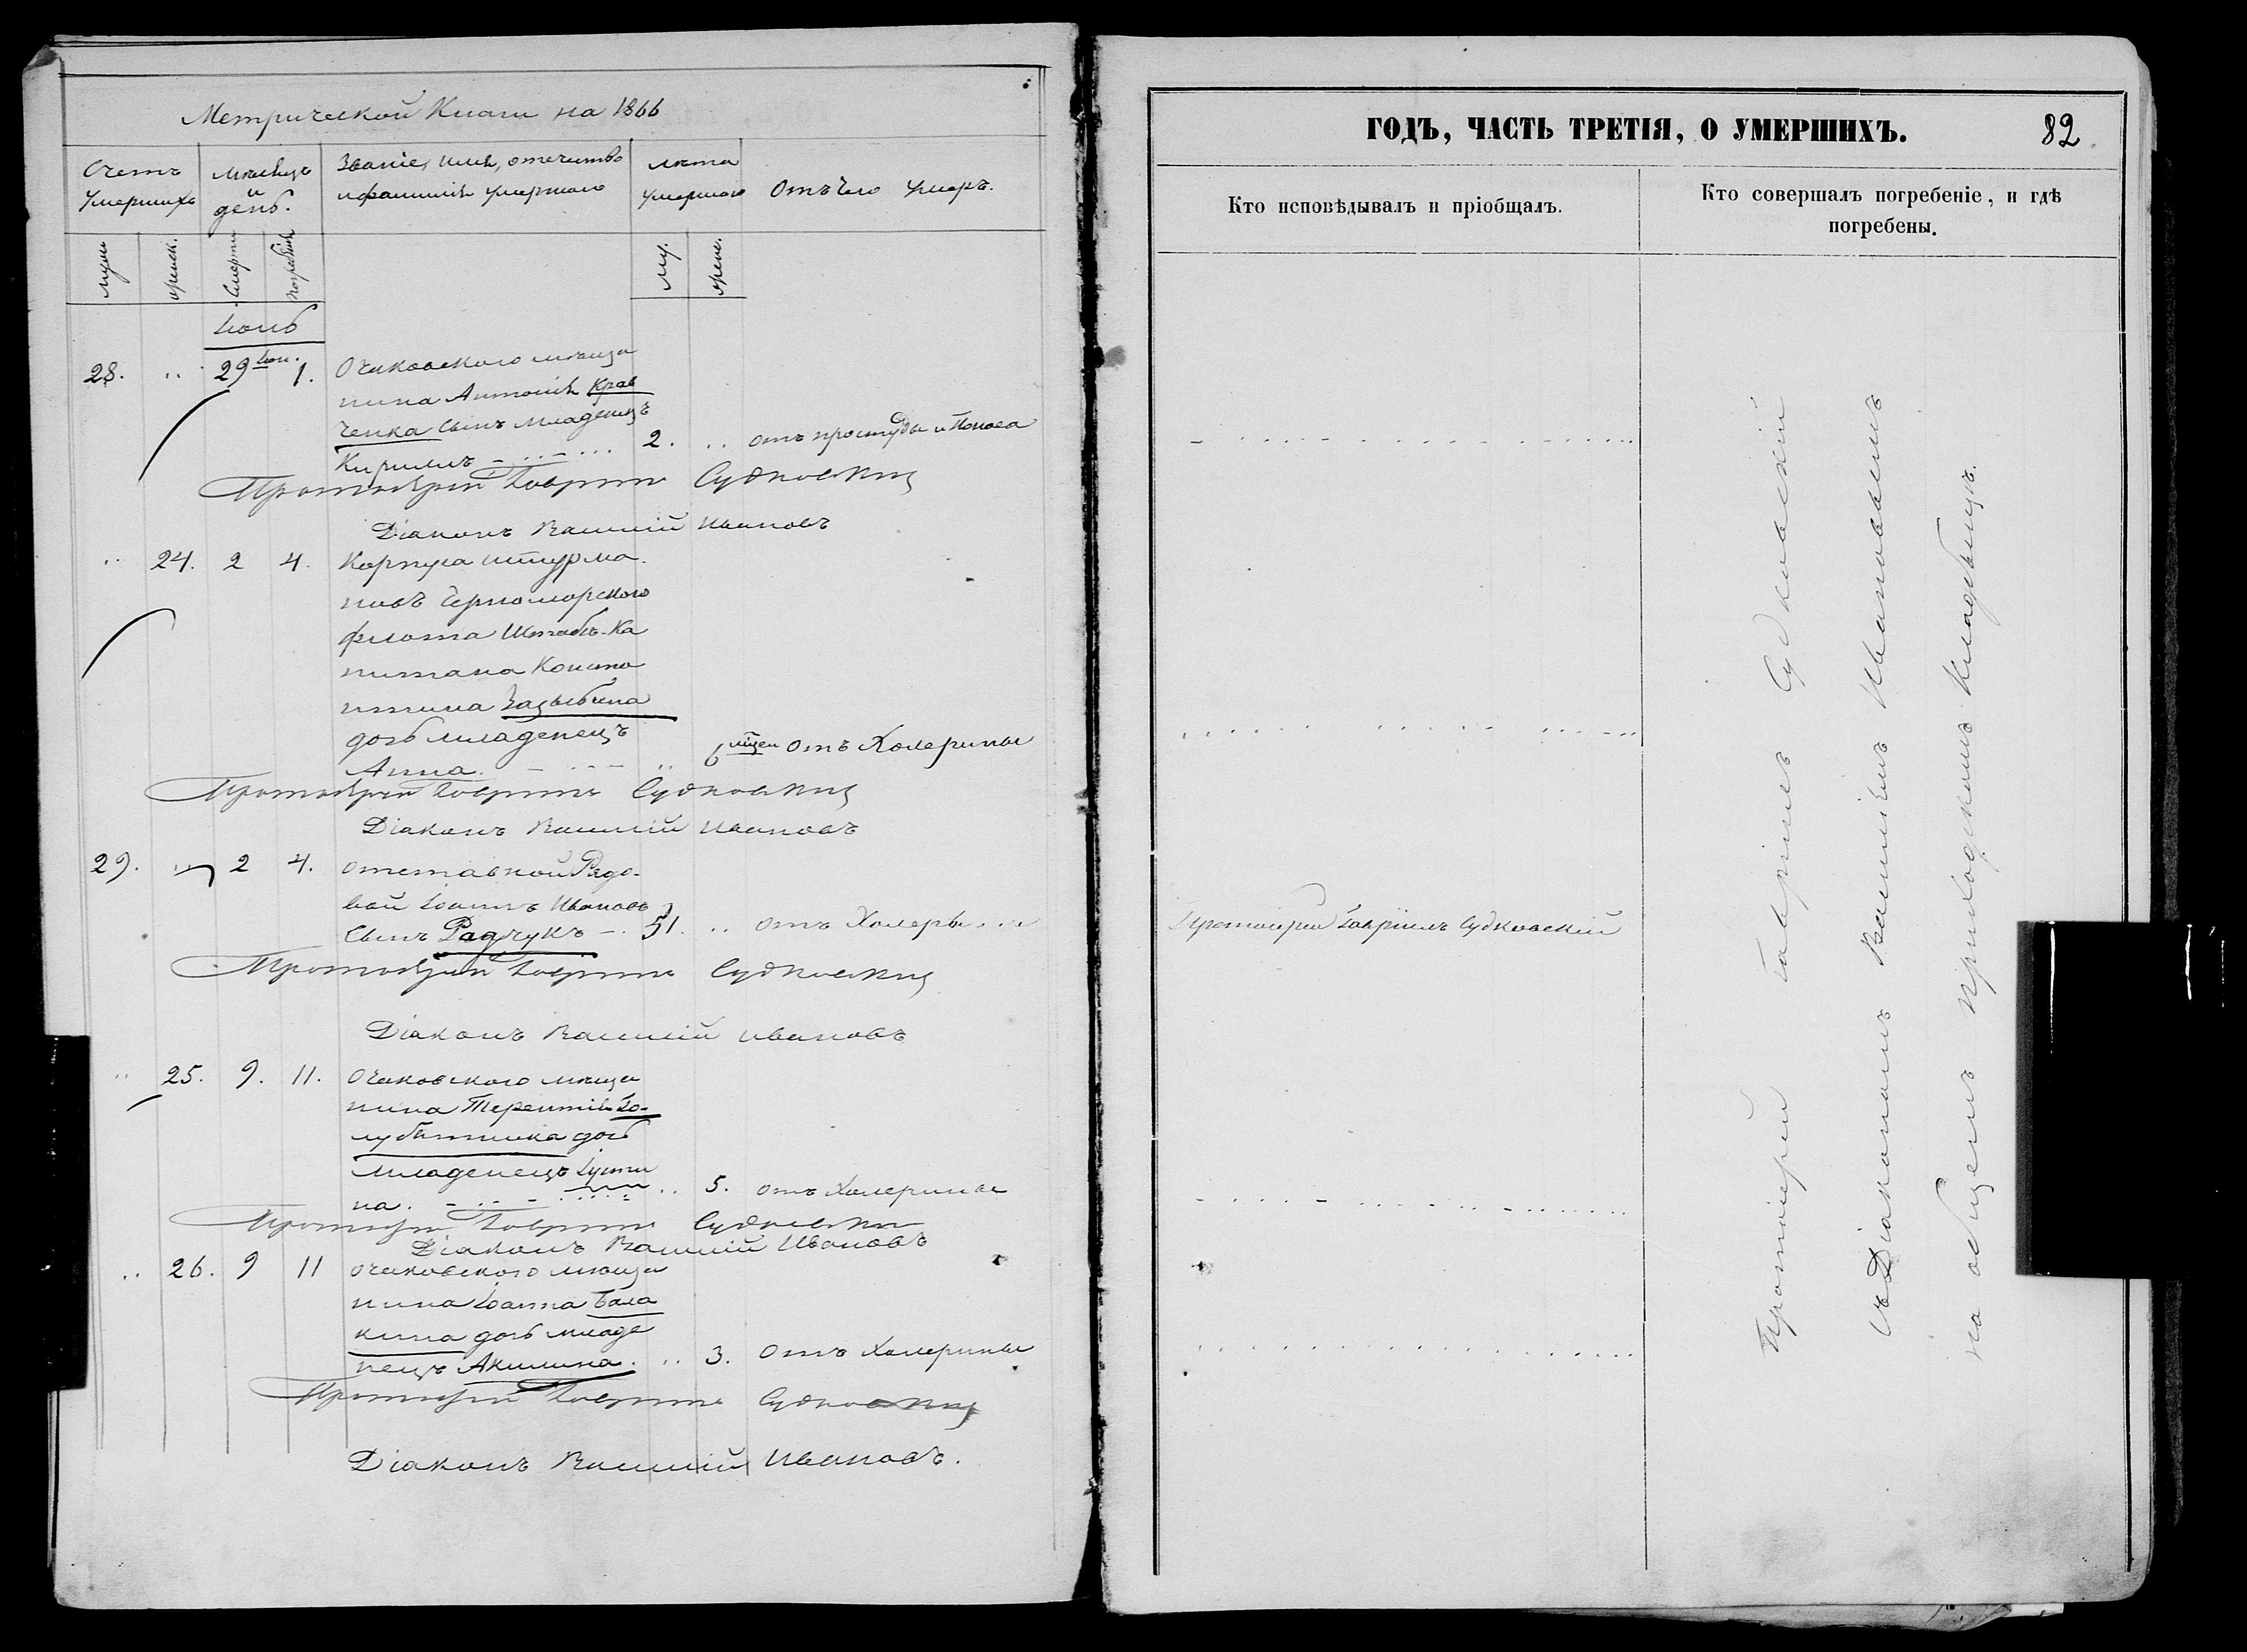 Метрической Книги на 1866
Счетъ Умершихъ
Мѣсяцъ и день.
Званіе, имя, отечитво и фамилія умершаго
Лѣта Умершаго
Отъ Чего Умеръ.
муж
женск.
Смерти
погребенія
му.
жен.
Іюль
28. .. 29 Іюн. 1. Очаковского мѣща
нина Антонія Крав
ченка сынъ младенецъ
Кирилъ 2. .. отъ простуды и поноса
Протоіерей Гавріилъ Судковскій
Діаконъ Василій Ивановъ
.. 24. 2 4. Корпуса штурма
новъ Черноморского
флота Штабсъ-Ка
питана Конста
нтина Зацыбина
дочь младенецъ
Анна. .. 6 мѣсец отъ Холерины
Протоіерей Гавріилъ Судковскій
Діаконъ Василій Ивановъ
29. .. 2 4. отставной Рядо
вой Іоаннъ Ивановъ
Сынъ Радчукъ 51. .. отъ Холеры
Протоіерей Гавріилъ Судковскій
Діаконъ Василій Ивановъ
.. 25. 9. 11. Очаковского мѣща
нина Терентія Го-
лубятника дочь
младенецъ Іусти
на. .. 5. отъ Холерины
Протоіерей Гавріилъ Судковскій
Діаконъ Василій Ивановъ
.. 26. 9 11 очаковского мѣща
нина Іоанна Бала
кина дочь младе
нецъ Акилина. .. 3. отъ Холерины
Протоіерей Гавріилъ Судковскій
Діаконъ Василій Ивановъ.
ГОДЪ, ЧАСТЬ ТРЕТІЯ, О УМЕРШИХЪ.
82
Кто исповѣдывалъ и пріобщалъ.
Кто совершалъ погребеніе, и гдѣ
погребены.
Протоіерей Гавріилъ Судковскій
Протоіерей Гавріилъ Судковскій
съ Діакономъ Василіемъ Ивановымъ
на общемъ приходскомъ кладбищѣ.